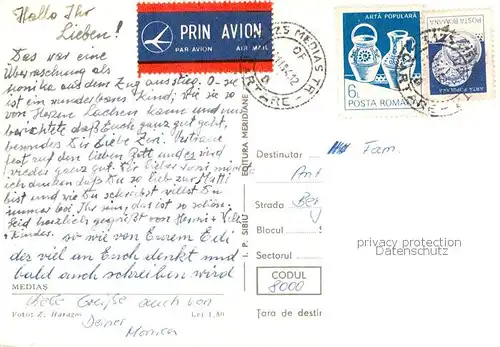 Hallo Ihr
Lieben!
PRIN AVION
PAR AVION AIR MAIL
Das war eine
Überraschung als
Monika aus dem Zug ausstieg. O- sie
ist ein wunderbares Kind, wie sie so
von Herzen Lachen kann und uns
berichtete daß Euch ganz gut geht,
besonders Dir liebe Zivi. Vertraue
fest auf den lieben Gott und es wird
wieder ganz gut. Dir lieber
ich danken daß Du so lieb zur Mutti
bist und wie Du schreibst willst Du
immer bei Ihr sein, das ist so schön.
Seid herzlich gegrüßt von Henni +
Kindes.
so wie von Eurem Edi
der viel an Euch denkt und
bald auch schreiben wird
MEDIAȘ
viele Grüße auch von
Deiner
Monica
Foto: Z. Haragos Lei 1,50
I. P. SIBIU EDITURA MERIDIANE
MEDIAS
CARTARE
ARTĂ POPULARĂ
6L
POSTA ROMANA
POSTA ROMANA
ARTĂ POPULARĂ
CARTARE
Destinatar Fam.
Ant
Strada Be
Blocul S
Sectorul
privacy protection
VDPH/BDPH
CODUL
8000
Țara de destin